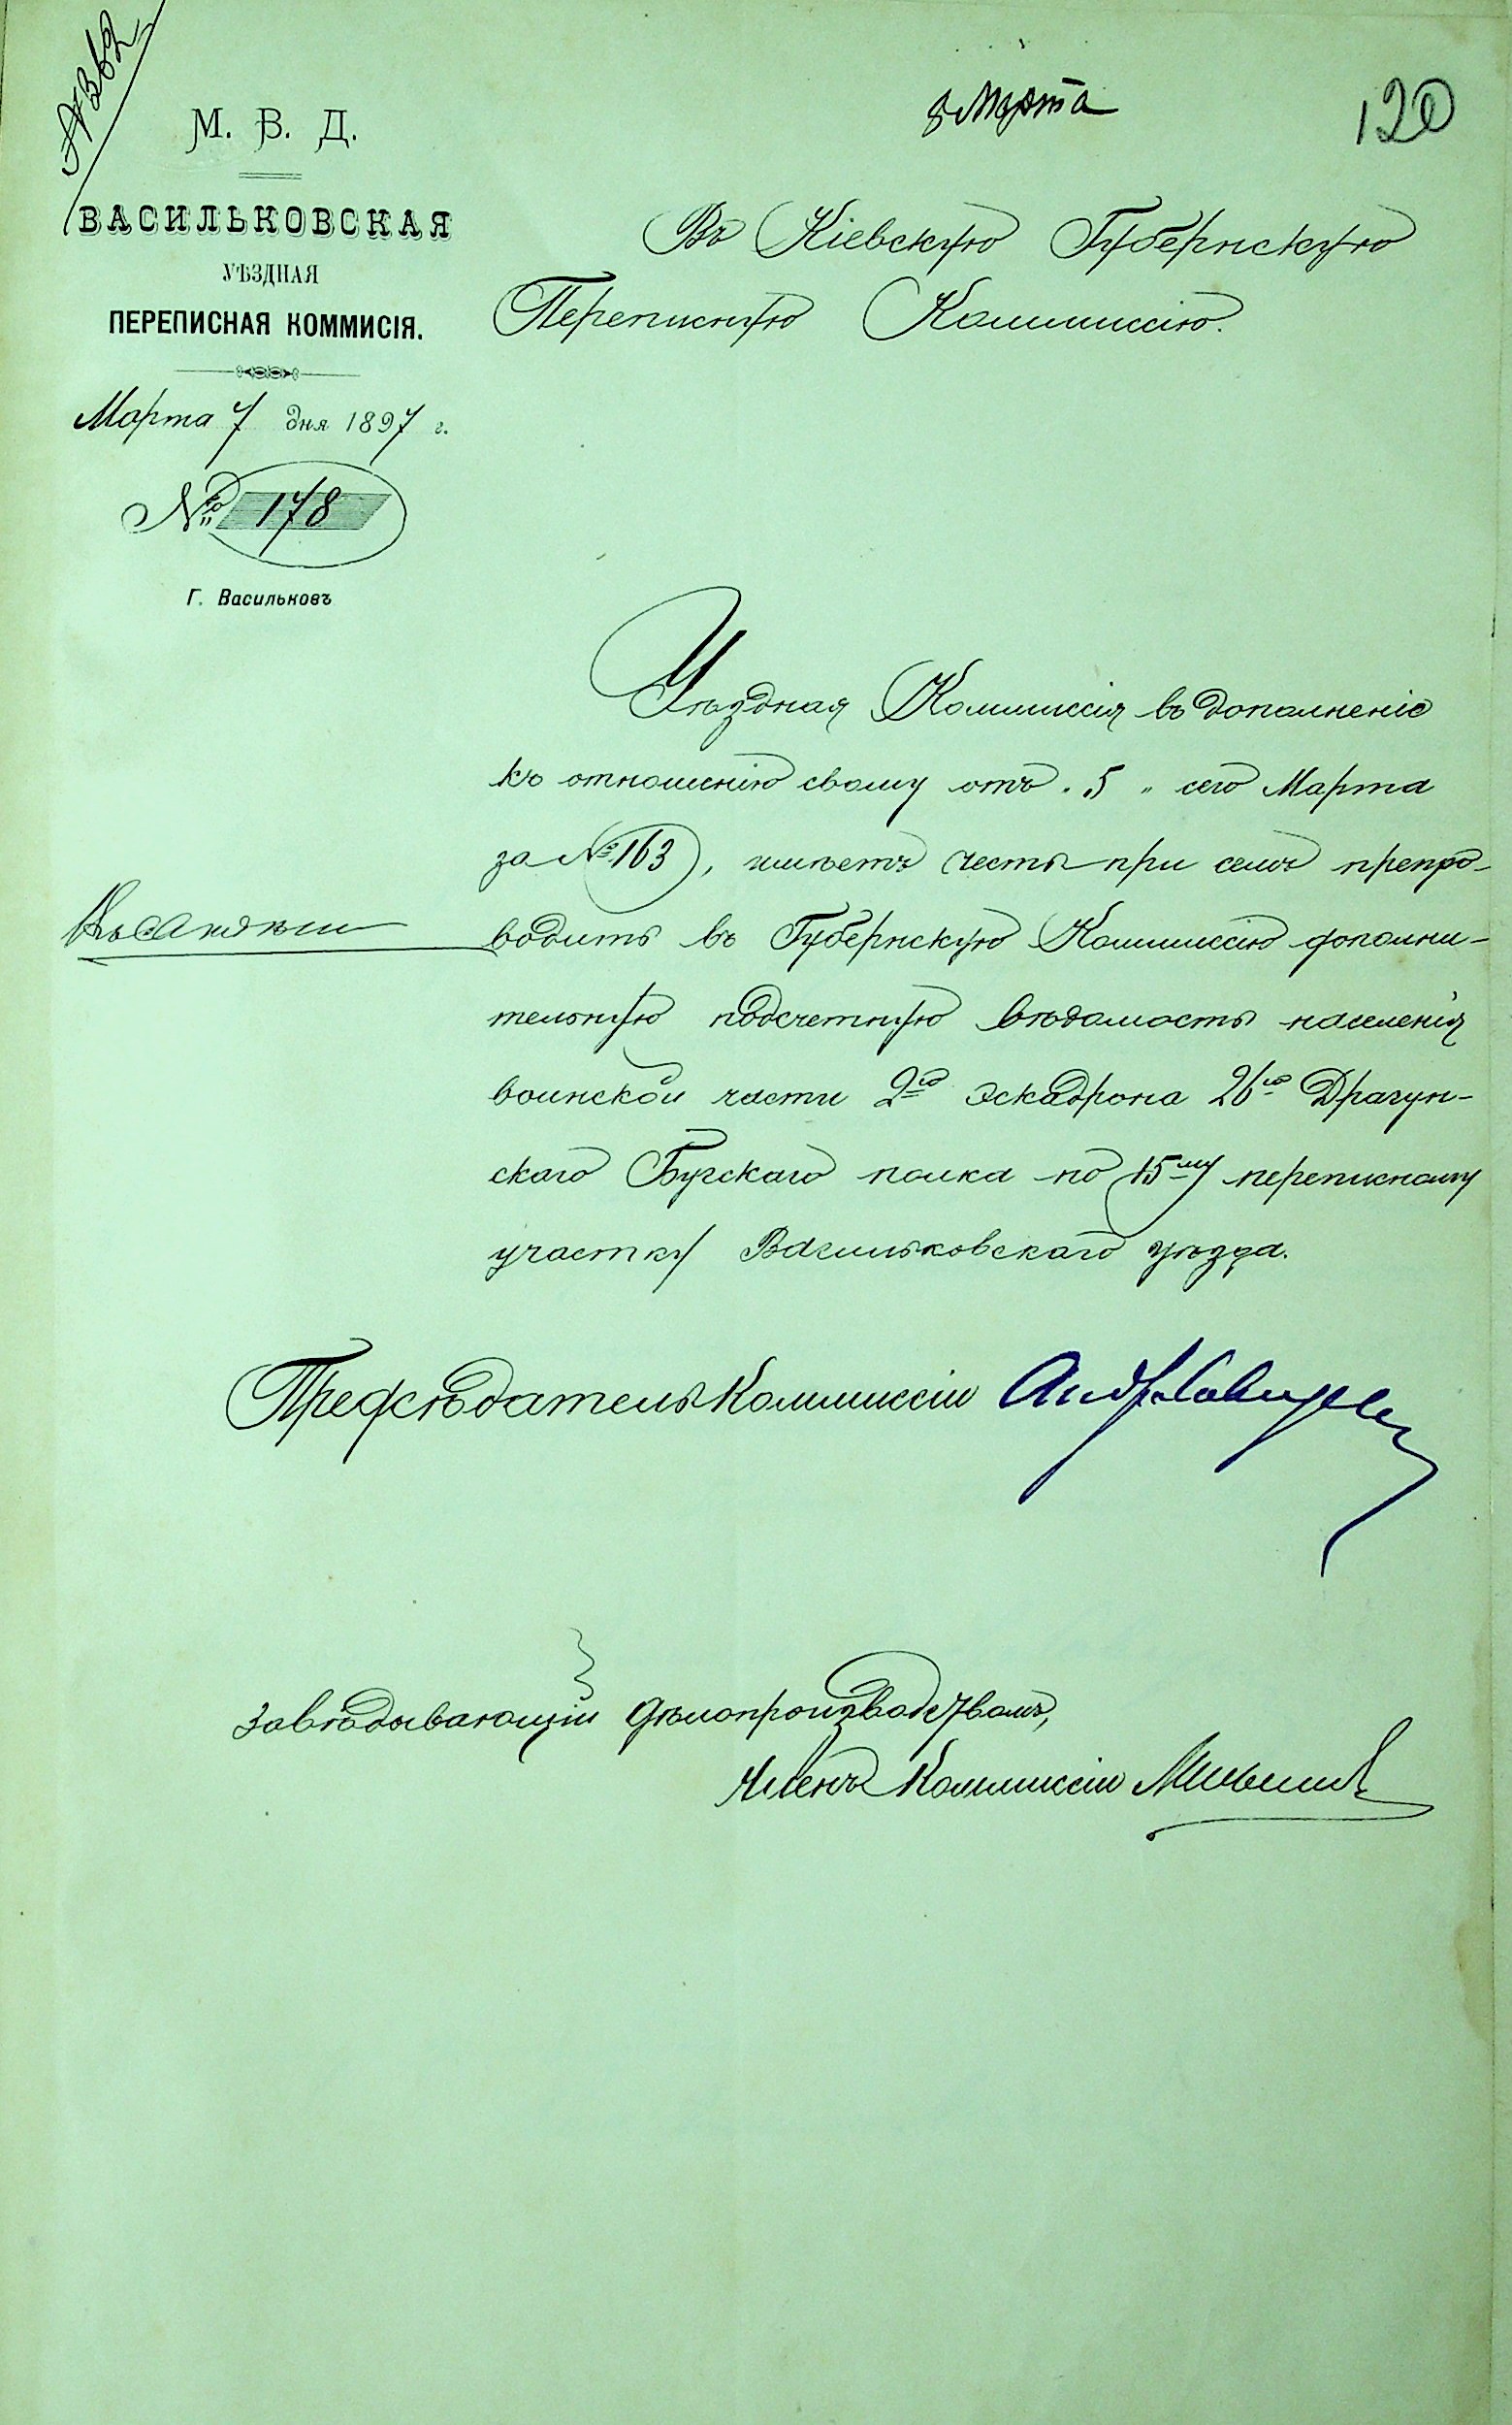 8 Марта
120
М. В. Д.
ВАСИЛЬКОВСКАЯ
УѢЗДНАЯ
ПЕРЕПИСНАЯ КОММИСІЯ.
Марта 7 дня 1897 г.
№ 178
Г. Васильковъ
Въ Кіевскую Губернскую
Переписную Коммиссію.
Уѣздная Коммиссія въ дополненіе
къ отношенію своему отъ „5„ сего Марта
за №163, имѣетъ честь при семъ препро-
водить въ Губернскую Коммиссію дополни-
тельную подсчетную вѣдомость населенія
воинской части 2го эскадрона 26го Драгун-
скаго Бугскаго полка по 15му переписному
участку Васильковскаго уѣзда.
Предсѣдатель Коммиссіи
Завѣдывающій дѣлопроизводствомъ,
Членъ Коммиссіи